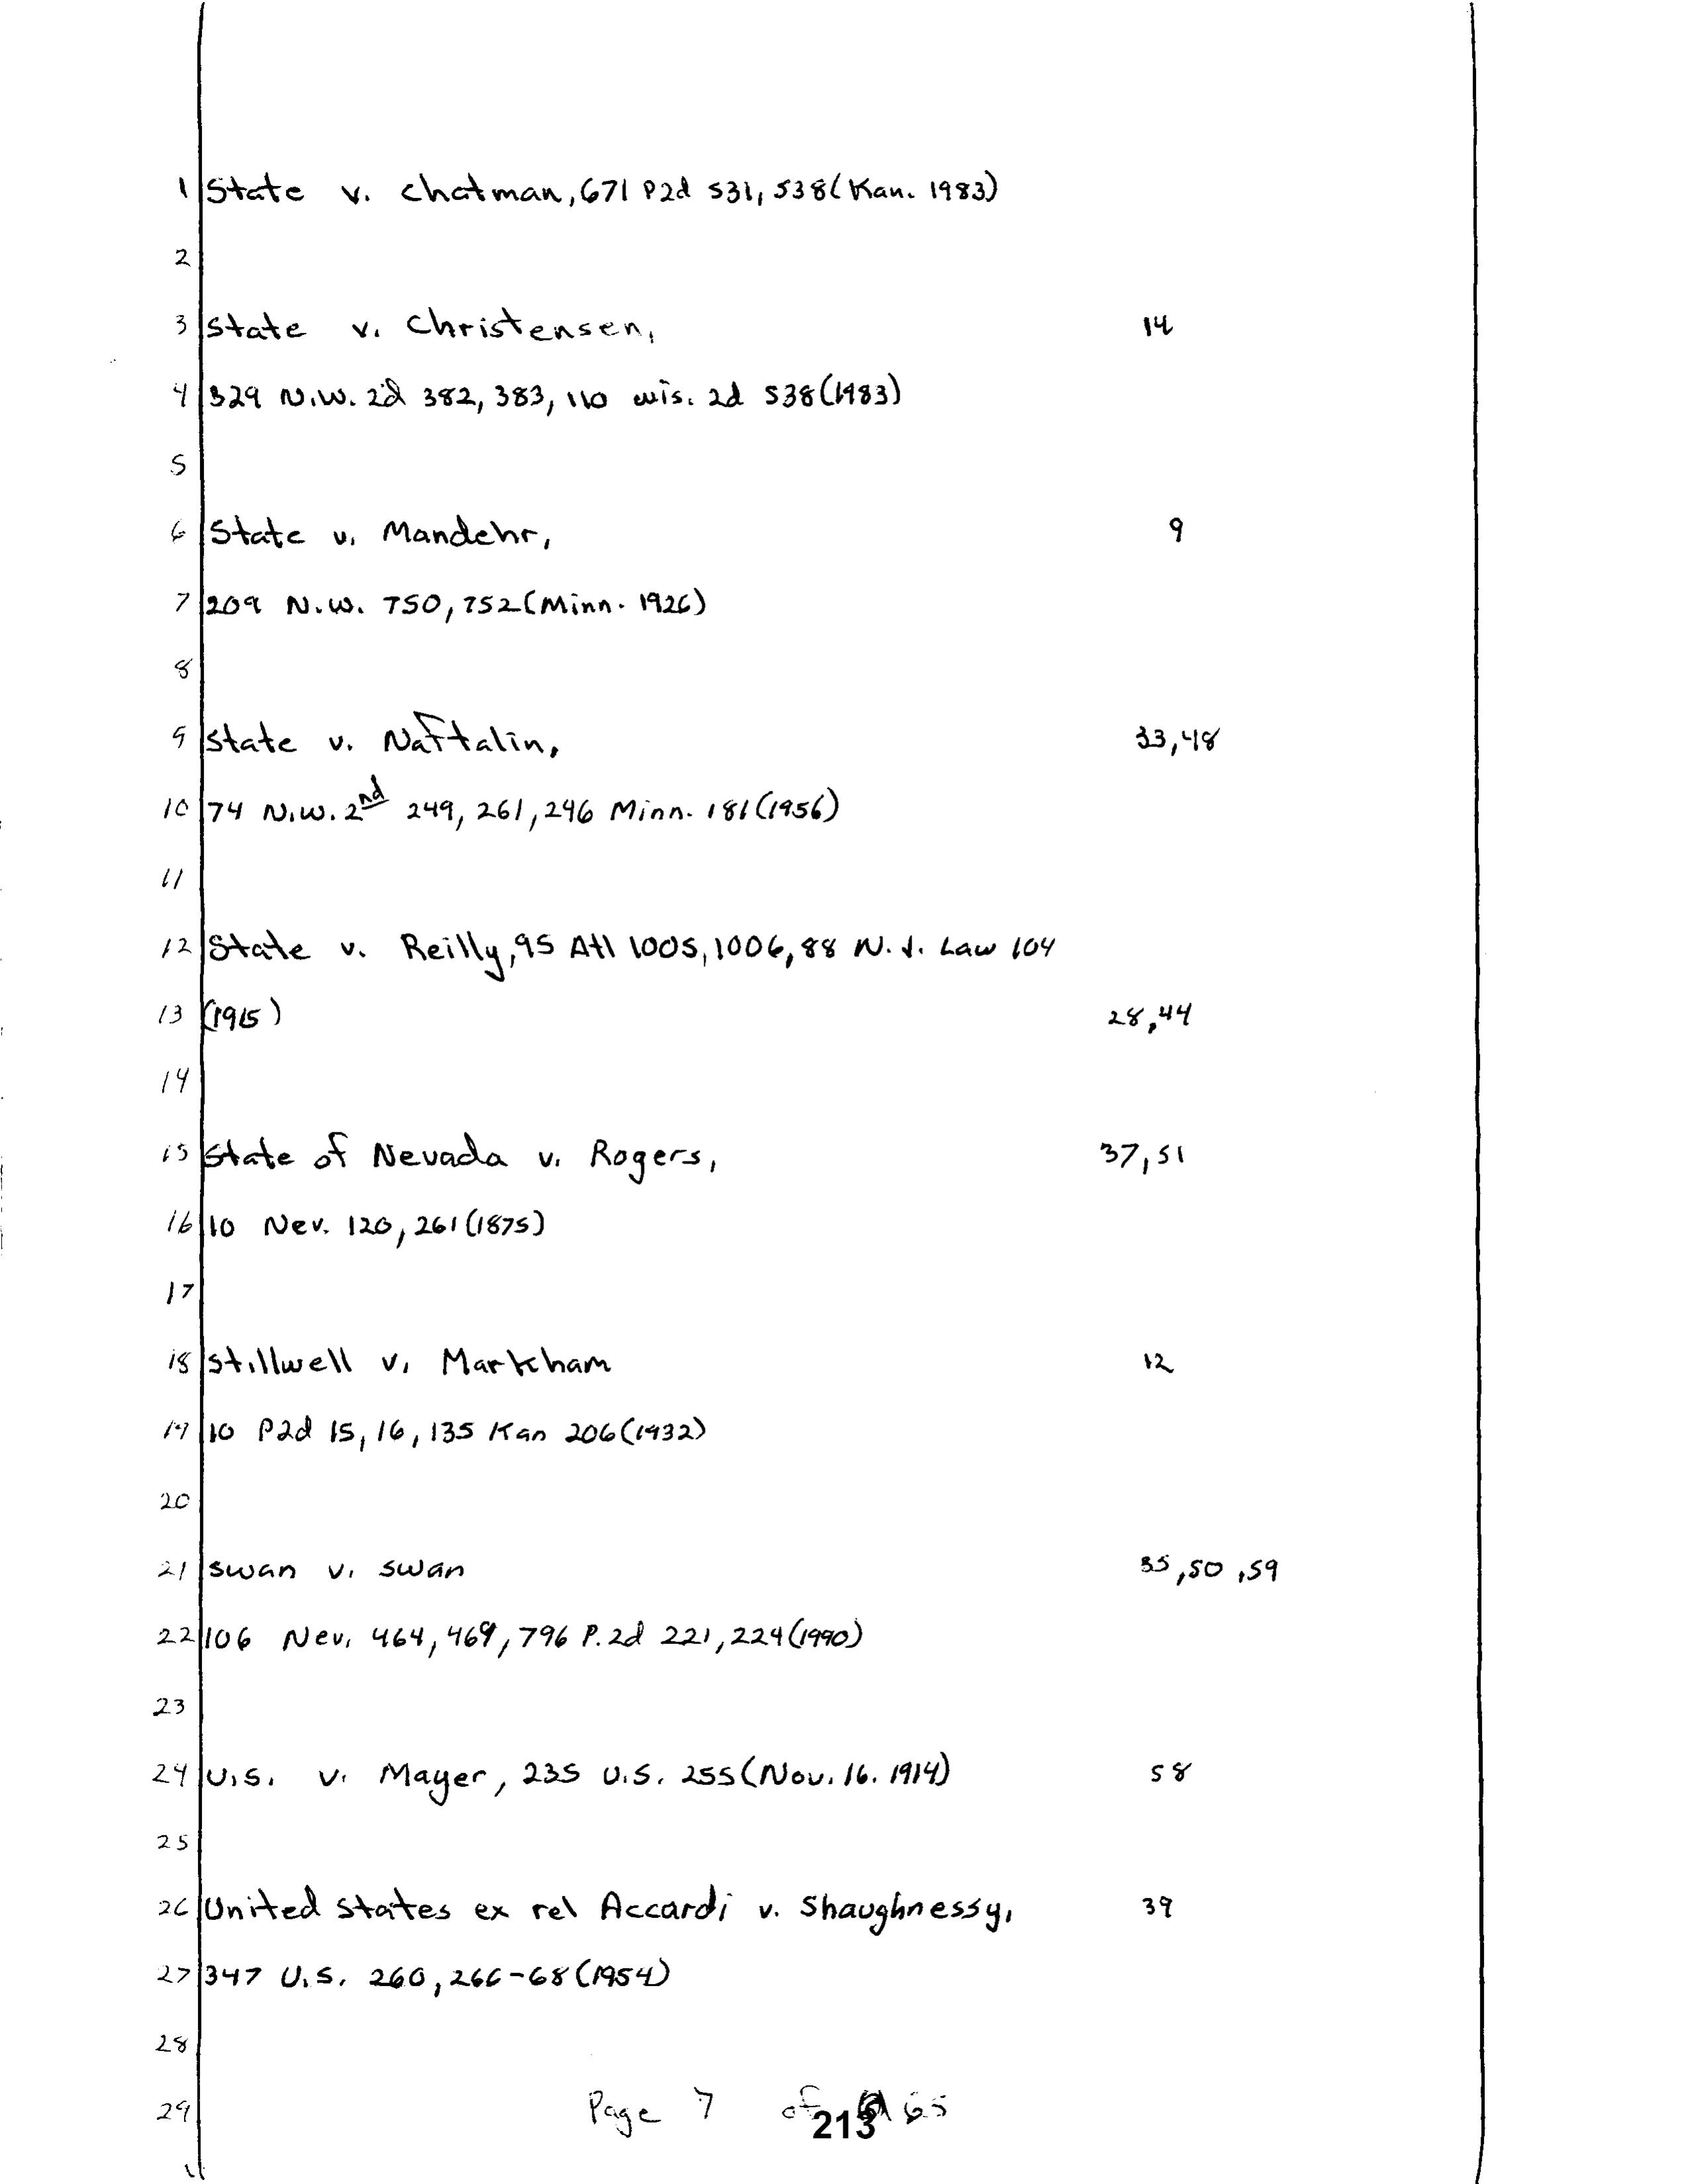 1 State v. Chatman, 671 P2d 531, 538 (Kan. 1983)
2
3 State v. Christensen, 14
4 329 N.W. 2d 382, 383, 110 Wis. 2d 538 (1983)
5
6 State v. Mandehr, 9
7 209 N.W. 750, 752 (Minn. 1926)
8
9 State v. Naftalin, 33, 48
10 74 N.W. 2nd 249, 261, 246 Minn. 181 (1956)
11
12 State v. Reilly, 95 Atl 1005, 1006, 88 N.J. Law 104
13 (1915) 28, 44
14
15 State of Nevada v. Rogers, 37, 51
16 10 Nev. 120, 261 (1875)
17
18 Stillwell v. Markham 12
19 10 P2d 15, 16, 135 Kan 206 (1932)
20
21 Swan v. Swan 35, 50, 59
22 106 Nev. 464, 469, 796 P.2d 221, 224 (1990)
23
24 U.S. v. Mayer, 235 U.S. 255 (Nov. 16. 1914) 58
25
26 United States ex rel Accardi v. Shaughnessy, 39
27 347 U.S. 260, 266-68 (1954)
28
29 Page 7 of 65
213